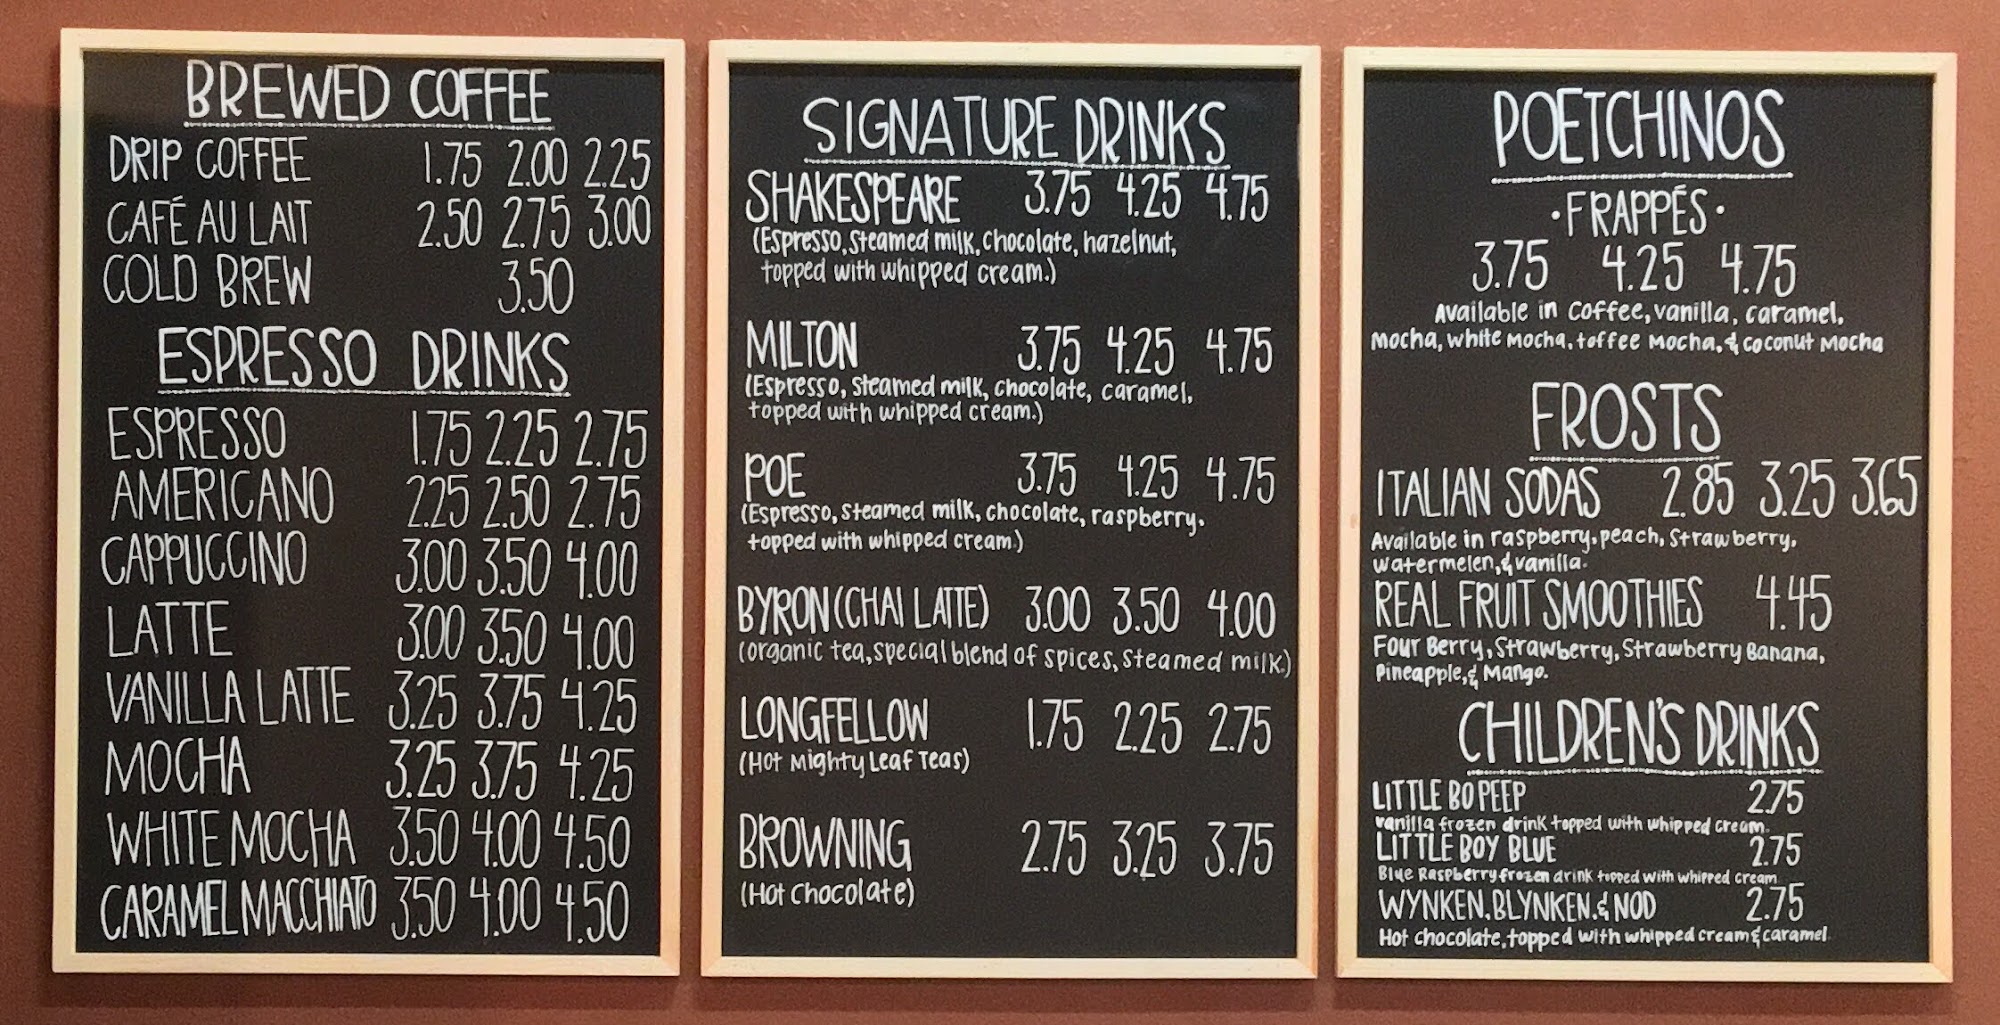 BREWED COFFEE
DRIP COFFEE 1.75 2.00 2.25
CAFÉ AU LAIT 2.50 2.75 3.00
COLD BREW 3.50
ESPRESSO DRINKS
ESPRESSO 1.75 2.25 2.75
AMERICANO 2.25 2.50 2.75
CAPPUCCINO 3.00 3.50 4.00
LATTE 3.00 3.50 4.00
VANILLA LATTE 3.25 3.75 4.25
MOCHA 3.25 3.75 4.25
WHITE MOCHA 3.50 4.00 4.50
CARAMEL MACCHIATO 3.50 4.00 4.50
SIGNATURE DRINKS
SHAKESPEARE 3.75 4.25 4.75
(Espresso, steamed milk, chocolate, hazelnut,
topped with whipped cream.)
MILTON 3.75 4.25 4.75
(Espresso, steamed milk, chocolate, caramel,
topped with whipped cream.)
POE 3.75 4.25 4.75
(Espresso, steamed milk, chocolate, raspberry,
topped with whipped cream.)
BYRON (CHAI LATTE) 3.00 3.50 4.00
(organic tea, special blend of spices, steamed milk.)
LONGFELLOW 1.75 2.25 2.75
(Hot Mighty Leaf Teas)
BROWNING 2.75 3.25 3.75
(Hot Chocolate)
POETCHINOS
·FRAPPÉS·
3.75 4.25 4.75
Available in coffee, vanilla, caramel,
Mocha, white Mocha, toffee Mocha, & coconut Mocha
FROSTS
ITALIAN SODAS 2.85 3.25 3.65
Available in raspberry, peach, strawberry,
watermelen, & vanilla.
REAL FRUIT SMOOTHIES 4.45
Four Berry, Strawberry, Strawberry Banana,
Pineapple, & Mango.
CHILDREN'S DRINKS
LITTLE BO PEEP 2.75
vanilla frozen drink topped with whipped cream.
LITTLE BOY BLUE 2.75
Blue Raspberry frozen drink topped with whipped cream
WYNKEN, BLYNKEN, & NOD 2.75
Hot chocolate, topped with whipped cream & caramel.